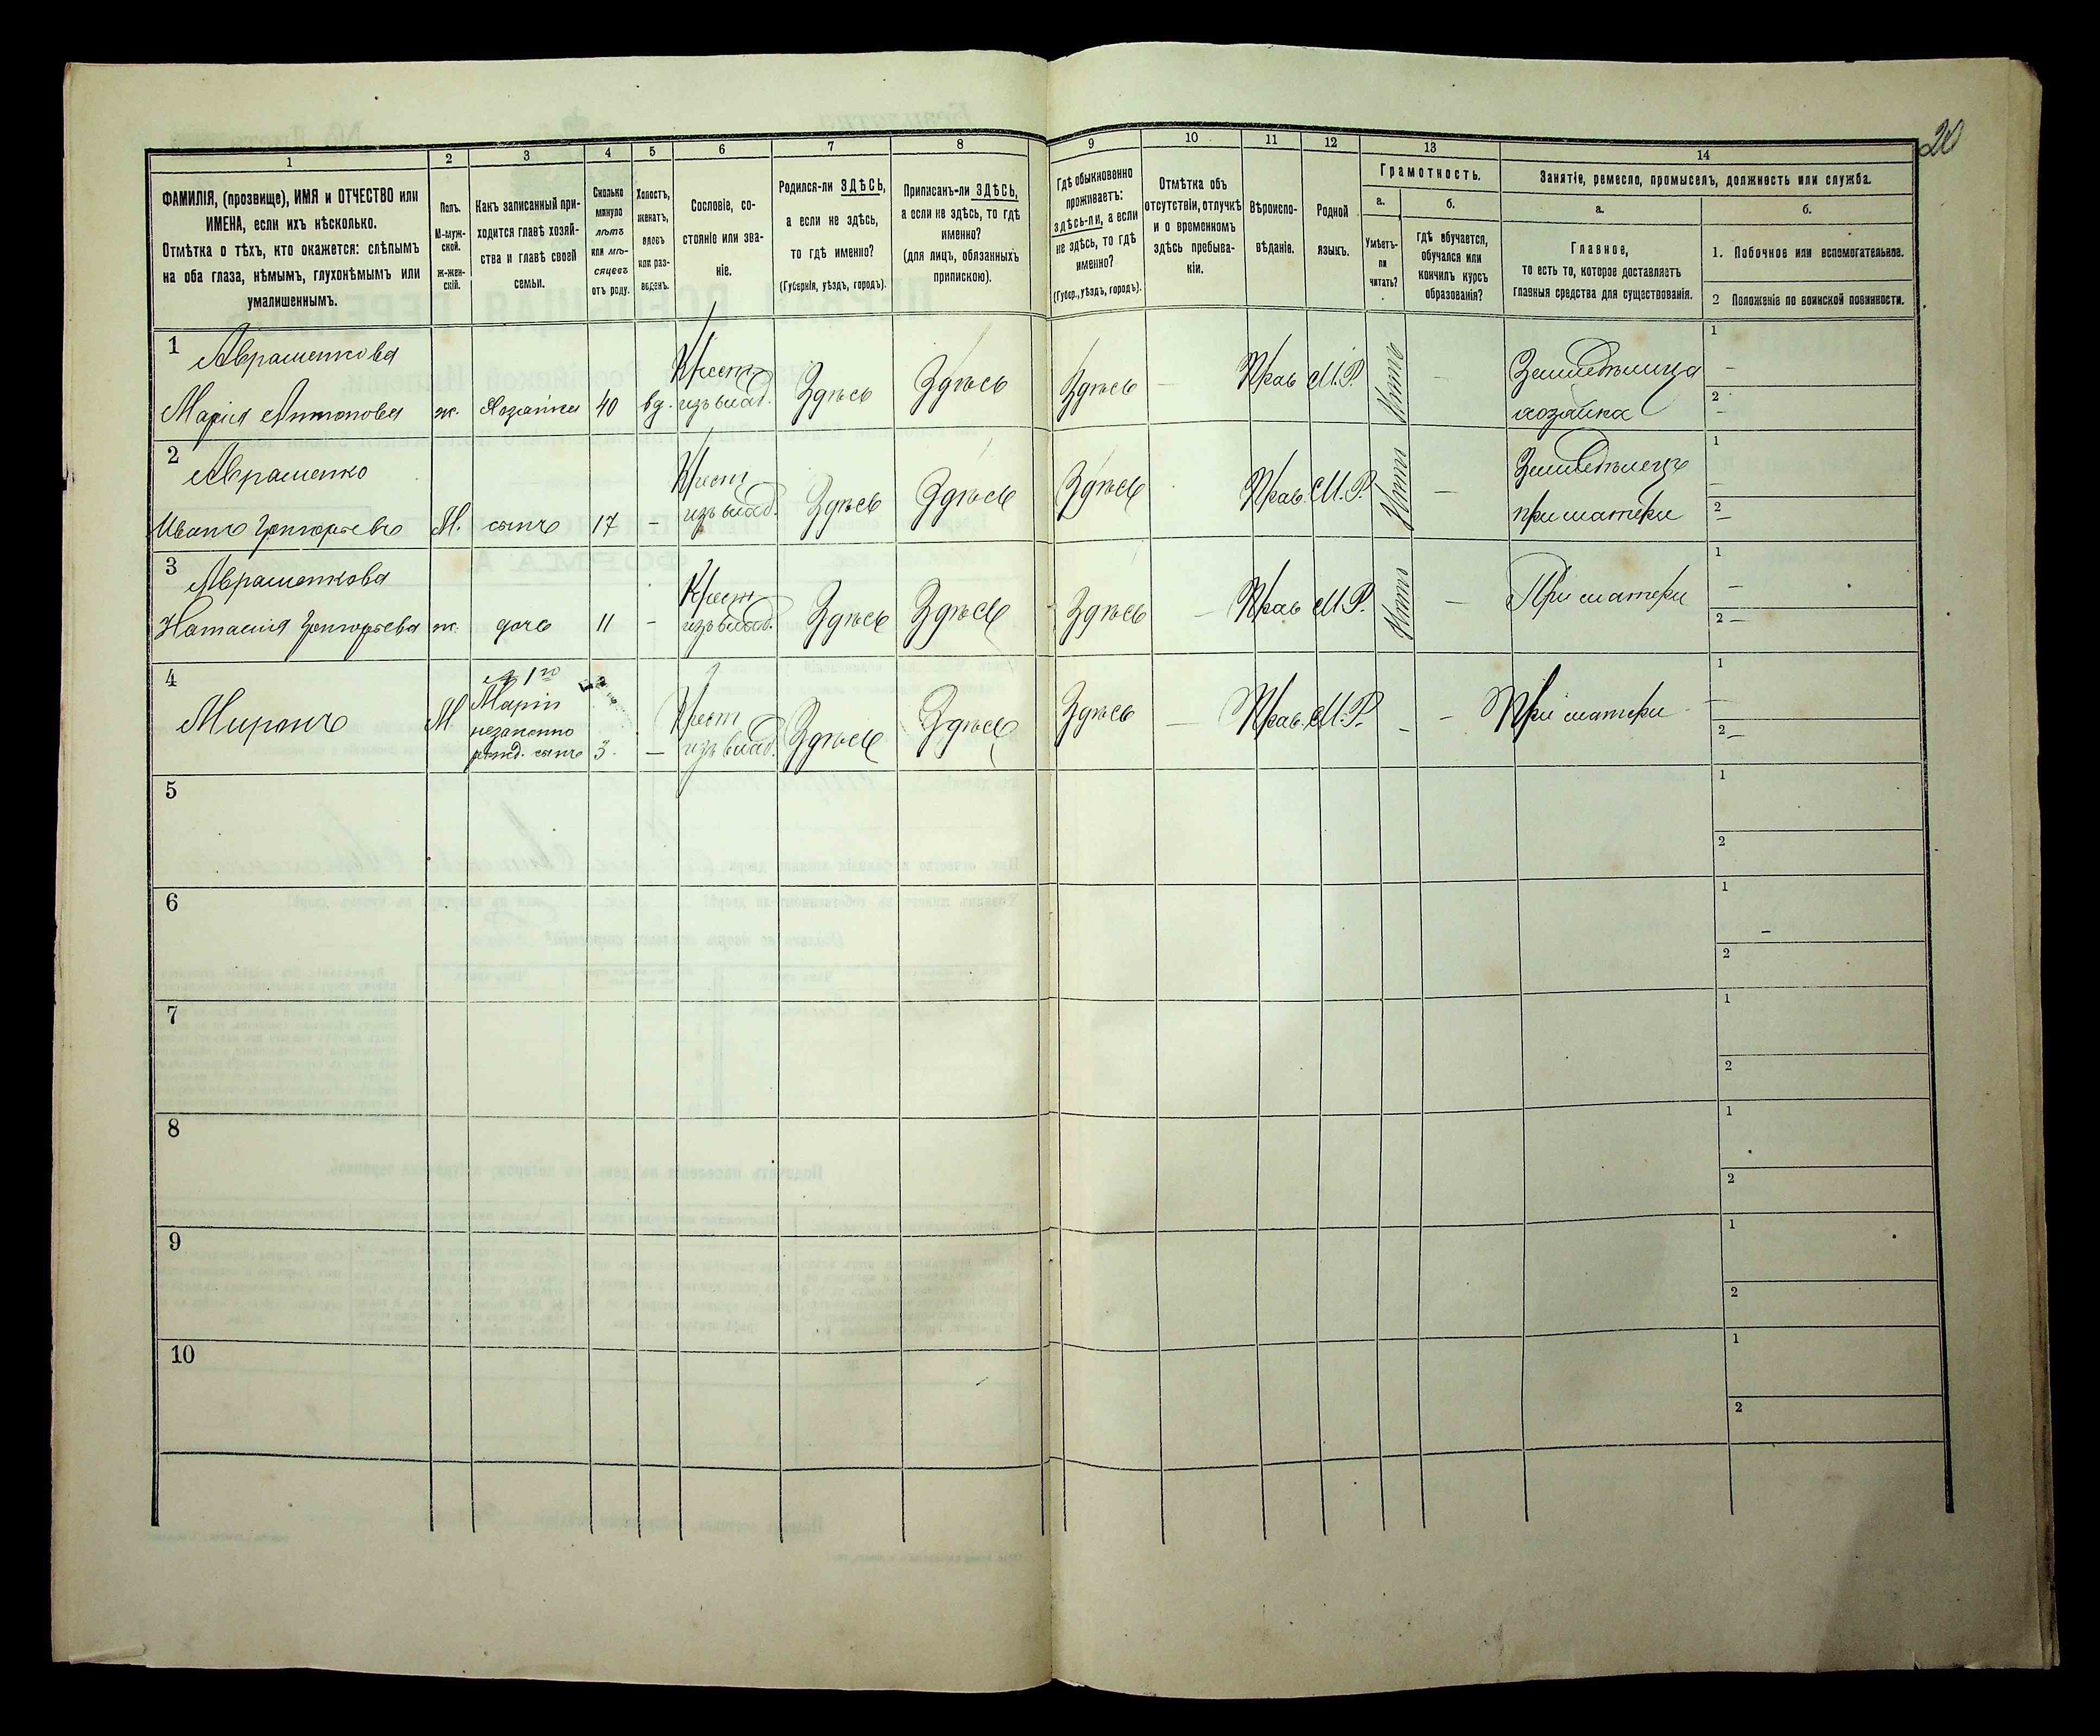 20
1 2 3 4 5 6 7 8 9 10 11 12 13 14
ФАМИЛІЯ, (прозвище), ИМЯ и ОТЧЕСТВО или
ИМЕНА, если ихъ нѣсколько.
Отмѣтка о тѣхъ, кто окажется: слѣпымъ
на оба глаза, нѣмымъ, глухонѣмымъ или
умалишеннымъ.
Полъ.
М-муж-
ской.
ж-жен-
скій.
Какъ записанный при-
ходится главѣ хозяй-
ства и главѣ своей
семьи.
Сколько
минуло
лѣтъ
или мѣ-
сяцевъ
отъ роду.
Холостъ,
женатъ,
вдовъ
или раз-
веденъ.
Сословіе, со-
стояніе или зва-
ніе.
Родился-ли ЗДѢСЬ,
а если не здѣсь,
то гдѣ именно?
(Губернія, уѣздъ, городъ).
Приписанъ-ли ЗДѢСЬ,
а если не здѣсь, то гдѣ
именно?
(для лицъ, обязанныхъ
припискою).
Гдѣ обыкновенно
проживаетъ:
здѣсь-ли, а если
не здѣсь, то гдѣ
именно?
(Губер., уѣздъ, городъ).
Отмѣтка объ
отсутствіи, отлучкѣ
и о временномъ
здѣсь пребыва-
ніи.
Вѣроиспо-
вѣданіе.
Родной
языкъ.
Грамотность.
а.
Умѣетъ-
ли
читать?
б.
гдѣ обучается,
обучался или
кончилъ курсъ
образованія?
Занятіе, ремесло, промыселъ, должность или служба.
а.
Главное,
то есть то, которое доставляетъ
главныя средства для существованія.
б.
1. Побочное или вспомогательное.
2 Положеніе по воинской повинности.
1 Аврашенкова Крест. 1 –
Марія Антонова ж. Хозяйка 40 вд. изъ влад. Здѣсь Здѣсь Здѣсь – Прав М.Р. Нѣтъ – Земледѣлица
хозяйка 2 –
2 Аврашенко Крест 1 –
Иванъ Григорьевъ М. сынъ 17 – изъ влад. Здѣсь Здѣсь Здѣсь Прав. М.Р. Нѣтъ – Земледѣлецъ
при матери 2 –
3 Аврашенкова Крест 1 –
Наталія Григорьева ж. дочь 11 – изъ влад. Здѣсь Здѣсь Здѣсь – Прав М.Р. Нѣтъ – При матери 2 –
4 1го
Маріи
Миронъ М. незаконно Крест 1 –
рожд. сынъ 3. – изъ влад. Здѣсь Здѣсь Здѣсь – Прав. М.Р. – – При матери 2 –
5 1
2
6 1
2
7 1
2
8 1
2
9 1
2
10 1
2